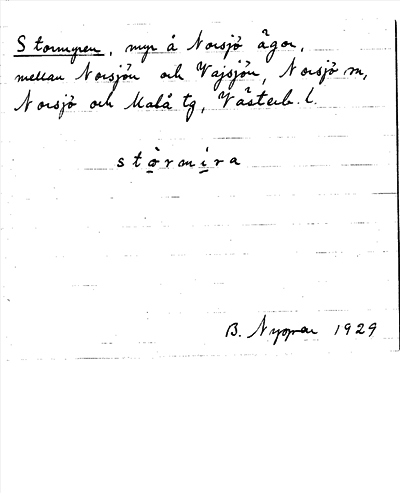 Stormyren, myr å Norsjö ägor,
mellan Norsjön och Vajsjön, Norsjö sn,
Norsjö och Malå tg, Västerb. l.
stòrmíra
B. Nyman 1929